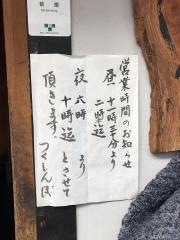 禁煙
No Smoking
営業時間のお知らせ
昼 十一時半分より
二時迄
夜 六時より
十時迄とさせて
頂きます。つくしんぼ